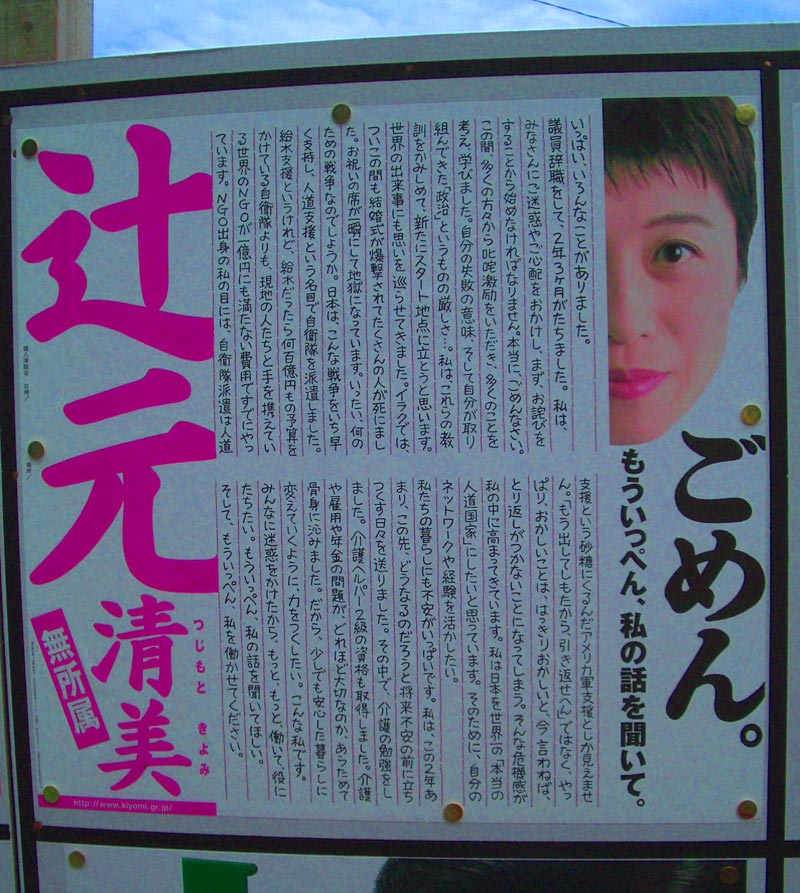 ごめん。
もういっぺん、私の話を聞いて。
いっぱい、いろんなことがありました。
議員辞職をして、2年3ヶ月がたちました。私は、
みなさんにご迷惑やご心配をおかけし、まず、お詫びを
することから始めなければなりません。本当に、ごめんなさい。
この間、多くの方々から叱咤激励をいただき、多くのことを
考え、学びました。自分の失敗の意味、そして自分が取り
組んできた「政治」というものの厳しさ…。私は、これらの教
訓をかみしめて、新たにスタート地点に立とうと思います。
世界の出来事にも思いを巡らせてきました。イラクでは、
ついこの間も結婚式が爆撃されてたくさんの人が死にまし
た。お祝いの席が一瞬にして地獄になっています。いったい、何の
ための戦争なのでしょうか。日本は、こんな戦争をいち早
く支持し、人道支援という名目で自衛隊を派遣しました。
給水支援というけれど、給水だったら何百億円もの予算を
かけている自衛隊よりも、現地の人たちと手を携えてい
る世界のNGOが一億円にも満たない費用ですでにやっ
ています。NGO出身の私の目には、自衛隊派遣は人道
支援という砂糖にくるんだアメリカ軍支援としか見えませ
ん。「もう出してしもたから、引き返せへん」ではなく、やっ
ぱり、おかしいことは、はっきりおかしいと、今、言わねば、
とり返しがつかないことになってしまう。そんな危機感が
私の中に高まってきています。私は日本を世界一の「本当の
人道国家」にしたいと思っています。そのために、自分の
ネットワークや経験を活かしたい。
私たちの暮らしにも不安がいっぱいです。私は、この2年あ
まり、この先、どうなるのだろうと将来不安の前に立ち
つくす日々を送りました。その中で、介護の勉強をし
ました。介護ヘルパー2級の資格も取得しました。介護
や雇用や年金の問題が、どれほど大切なのか、あらためて
骨身に沁みました。だから、少しでも安心した暮らしに
変えていくように、力をつくしたい。こんな私です。
みんなに迷惑をかけたから、もっと、もっと、働いて、役に
たちたい。もういっぺん、私の話を聞いてほしい。
そして、もういっぺん、私を働かせてください。
辻元
清美
つじもと きよみ
無所属
http://www.kiyomi.gr.jp/